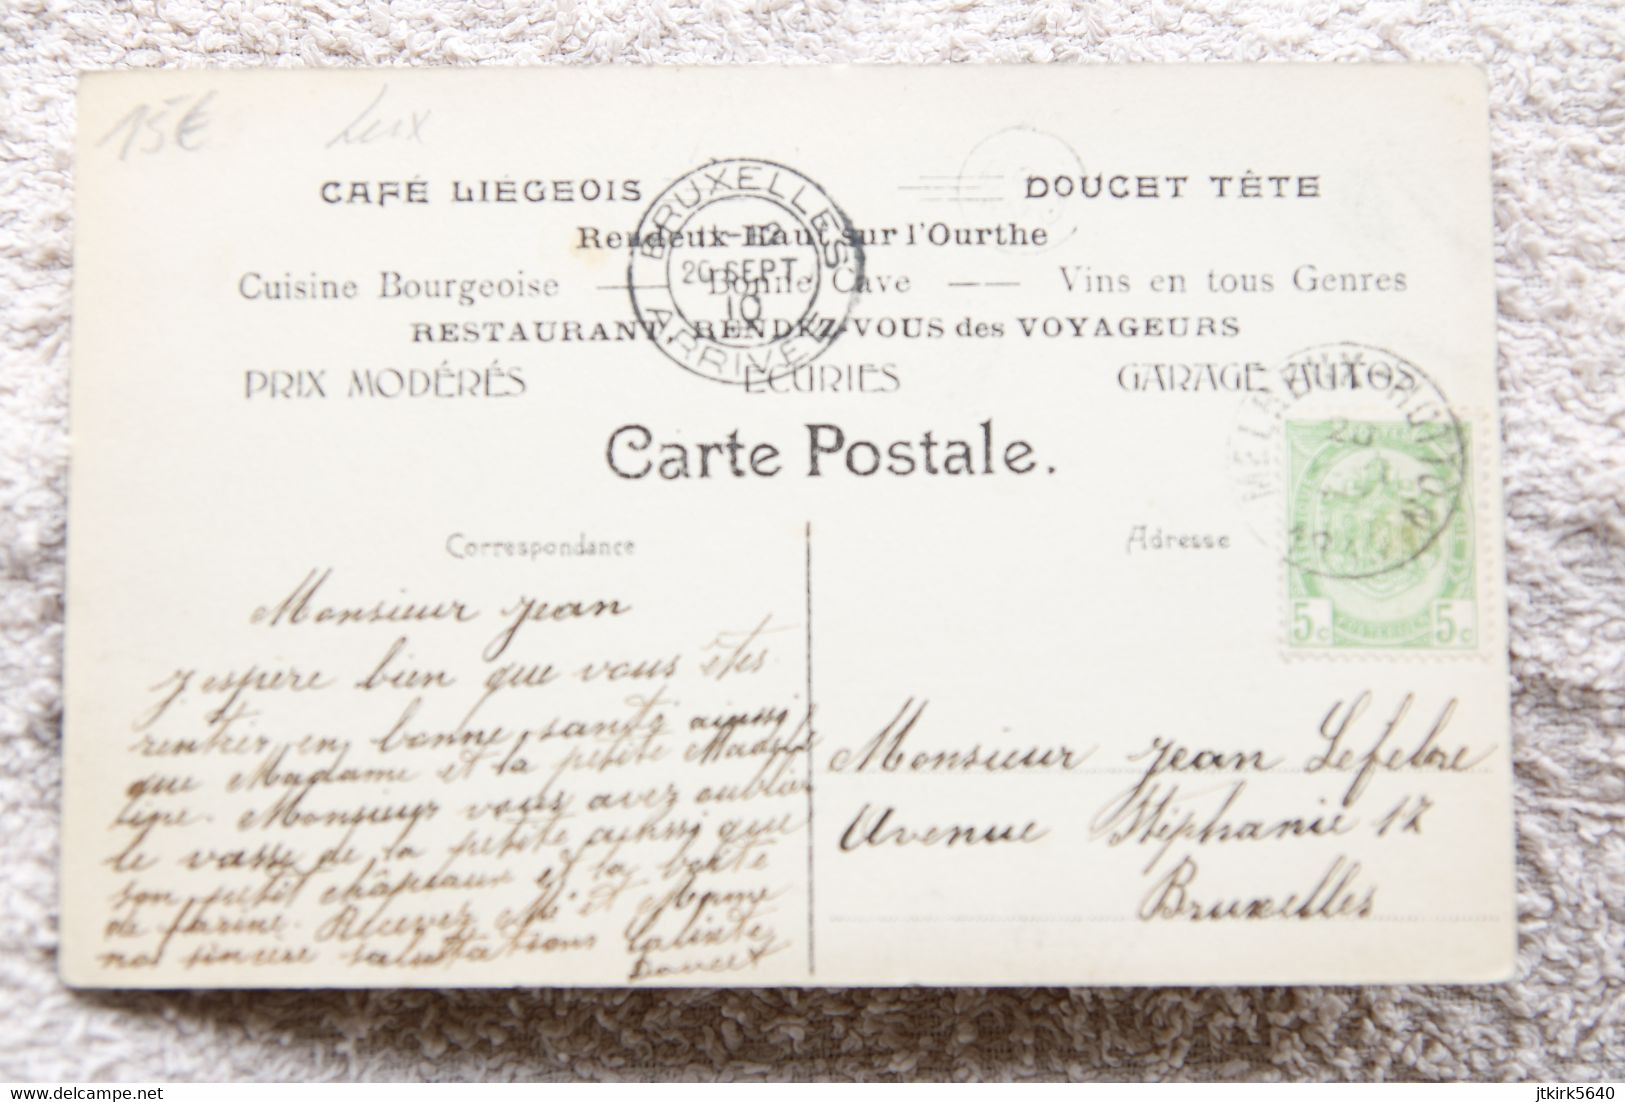 15€ Lux
CAFÉ LIÉGEOIS DOUCET TÊTE
Rendeux-Haut sur l'Ourthe
Cuisine Bourgeoise — Bonne Cave — Vins en tous Genres
RESTAURANT, RENDEZ-VOUS des VOYAGEURS
PRIX MODÉRÉS ECURIES GARAGE AUTOS
BRUXELLES
11-12
20 SEPT.
10
ARRIVEE
20
Carte Postale.
Correspondance
Monsieur Jean
J espère bien que vous êtes
rentrér en bonne santé ainssi
que Madame et la petite
Monsieur vous avez oublier
le vasse de la petite aussi que
son petit châpeaux et la boite
de farine. Recevez Mr et Mame
nos sincère salutations
Doucet
Adresse
5c 5c
Monsieur Jean Lefebre
Avenue Stéphanie 12
Bruxelles
delcampe.net
jtkirk5640